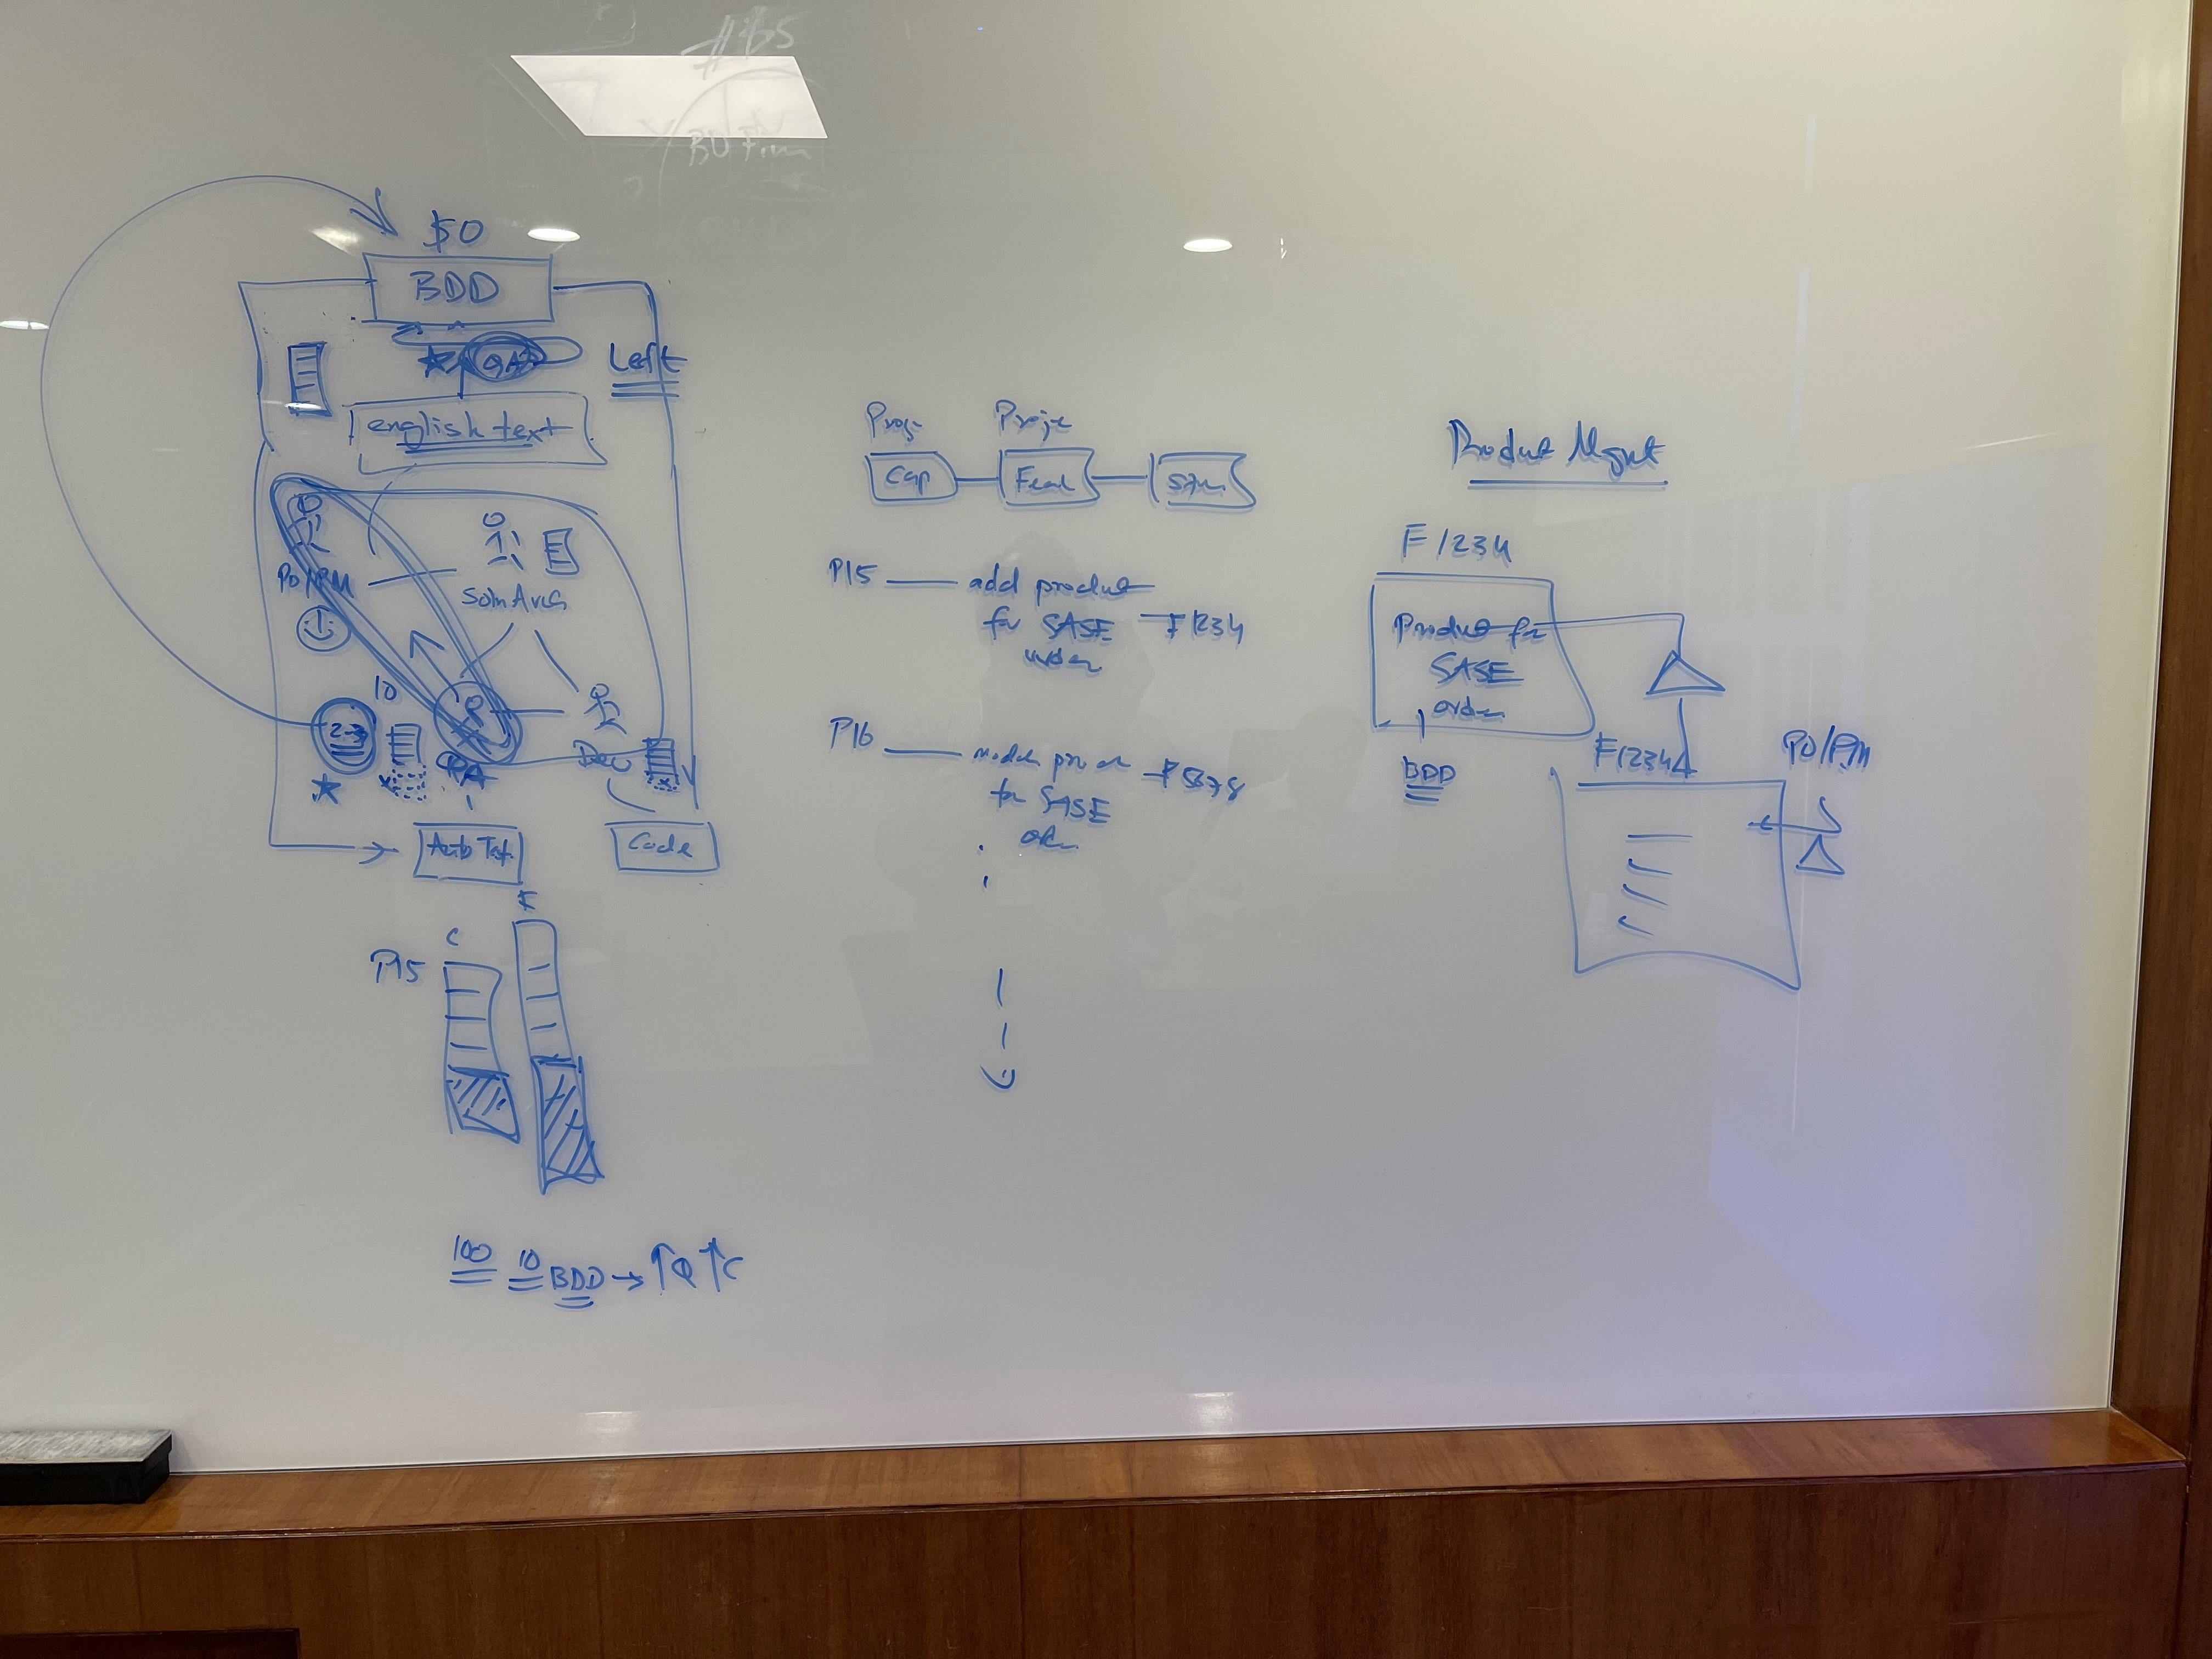 $0
BDD
QA
Left
english text
PO/PM
Soln Arch
10
2
QA
Dev
Auto Tst.
Code
C
F
PI5
100 10 BDD → ↑Q ↑C
Proje
Cap
Feat
PI5 — add product
for SASE — F1234
order
PI6
for SASE
F5678
Product Mgmt
F1234
Product for
SASE
order
BDD
F1234
PO/PM